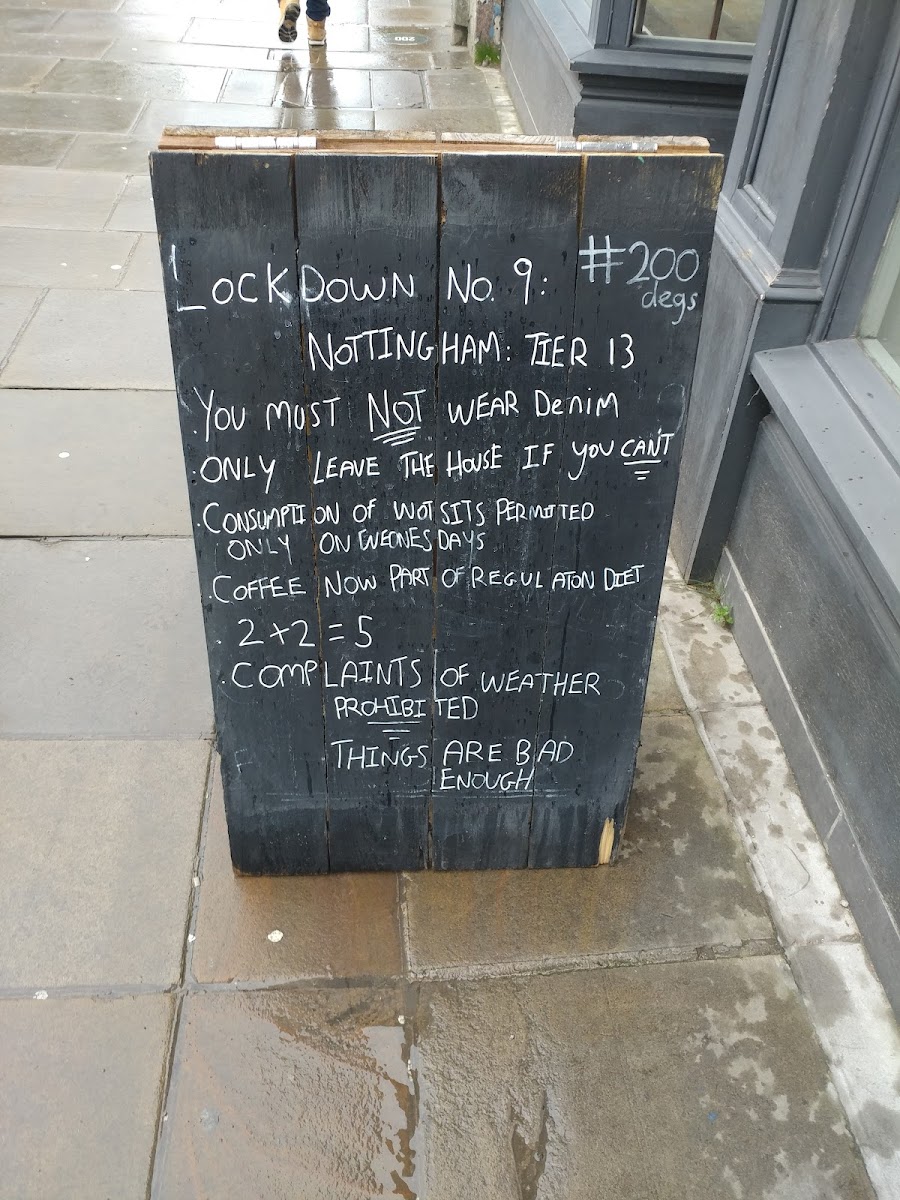 Lockdown No. 9:
#200
degs
NOTTINGHAM: TIER 13
· YOU MUST NOT WEAR Denim
· ONLY LEAVE THE HOUSE IF YOU CAN'T
· CONSUMPTION OF WOTSITS PERMITTED
ONLY ON WEDNESDAYS
· COFFEE NOW PART OF REGULATON DIET
· 2+2=5
· COMPLAINTS OF WEATHER
PROHIBITED
THINGS ARE BAD
ENOUGH